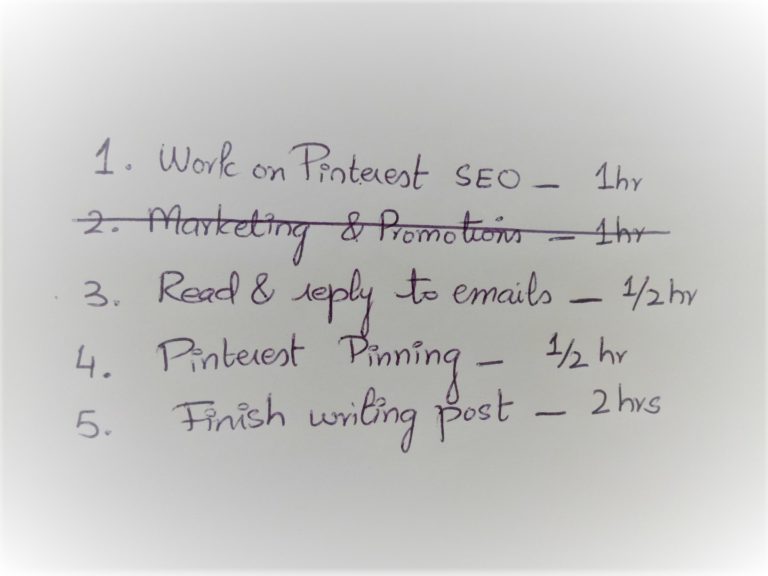 1. Work on Pinterest SEO – 1hr
2. Marketing & Promotions – 1hr
3. Read & reply to emails – 1/2 hr
4. Pinterest Pinning – 1/2 hr
5. Finish writing post – 2 hrs